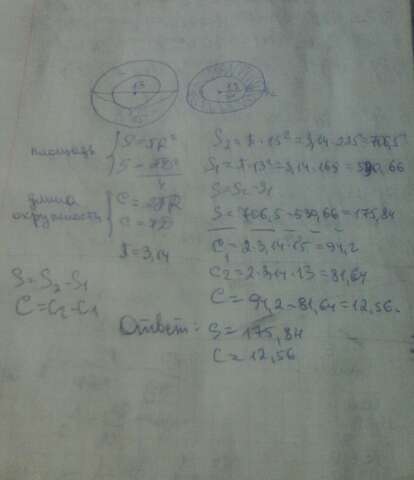 13
15
13
площадь
S = πR²
S = πD²
4
длина
окружность
C = 2πR
C = πD
π = 3,14
S = S₂ - S₁
C = C₂ - C₁
S₂ = π · 15² = 3,14 · 225 = 706,5
S₁ = π · 13² = 3,14 · 169 = 530,66
S = S₂ - S₁
S = 706,5 - 530,66 = 175,84
C₁ = 2 · 3,14 · 15 = 94,2
C₂ = 2 · 3,14 · 13 = 81,64
C = 94,2 - 81,64 = 12,56.
Ответ: S = 175,84
C = 12,56